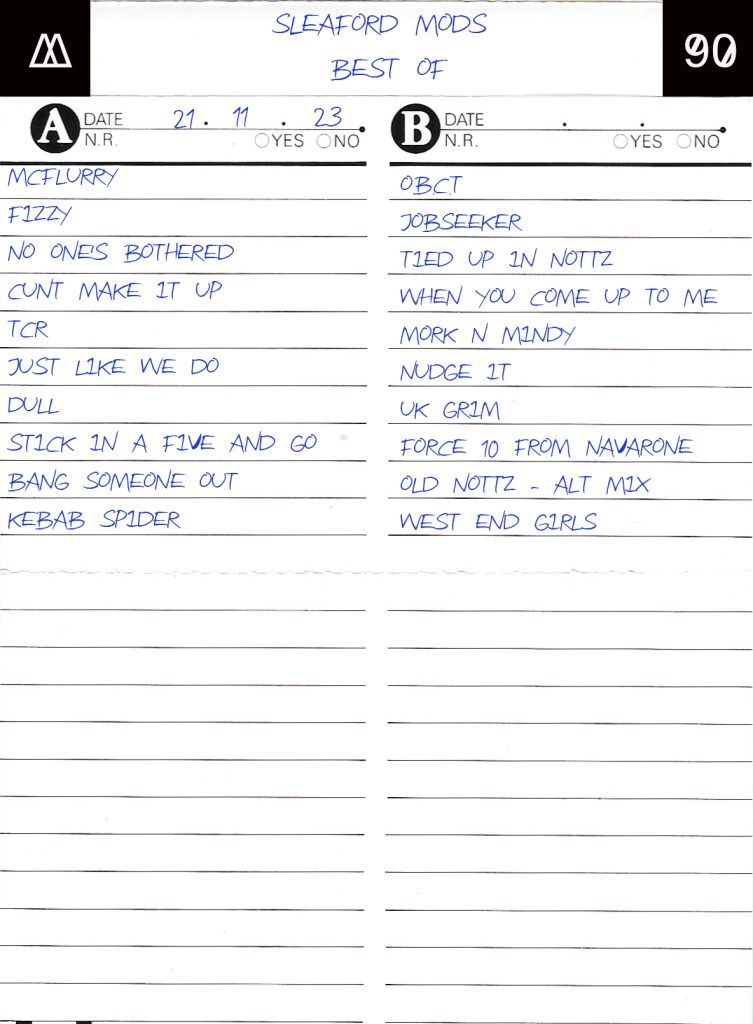 SLEAFORD MODS
BEST OF
90
A DATE 21 . 11 . 23
N.R. YES NO
MCFLURRY
FIZZY
NO ONE'S BOTHERED
CUNT MAKE IT UP
TCR
JUST LIKE WE DO
DULL
STICK IN A FIVE AND GO
BANG SOMEONE OUT
KEBAB SPIDER
B DATE . .
N.R. YES NO
OBCT
JOBSEEKER
TIED UP IN NOTTZ
WHEN YOU COME UP TO ME
MORK N MINDY
NUDGE IT
UK GRIM
FORCE 10 FROM NAVARONE
OLD NOTTZ - ALT MIX
WEST END GIRLS